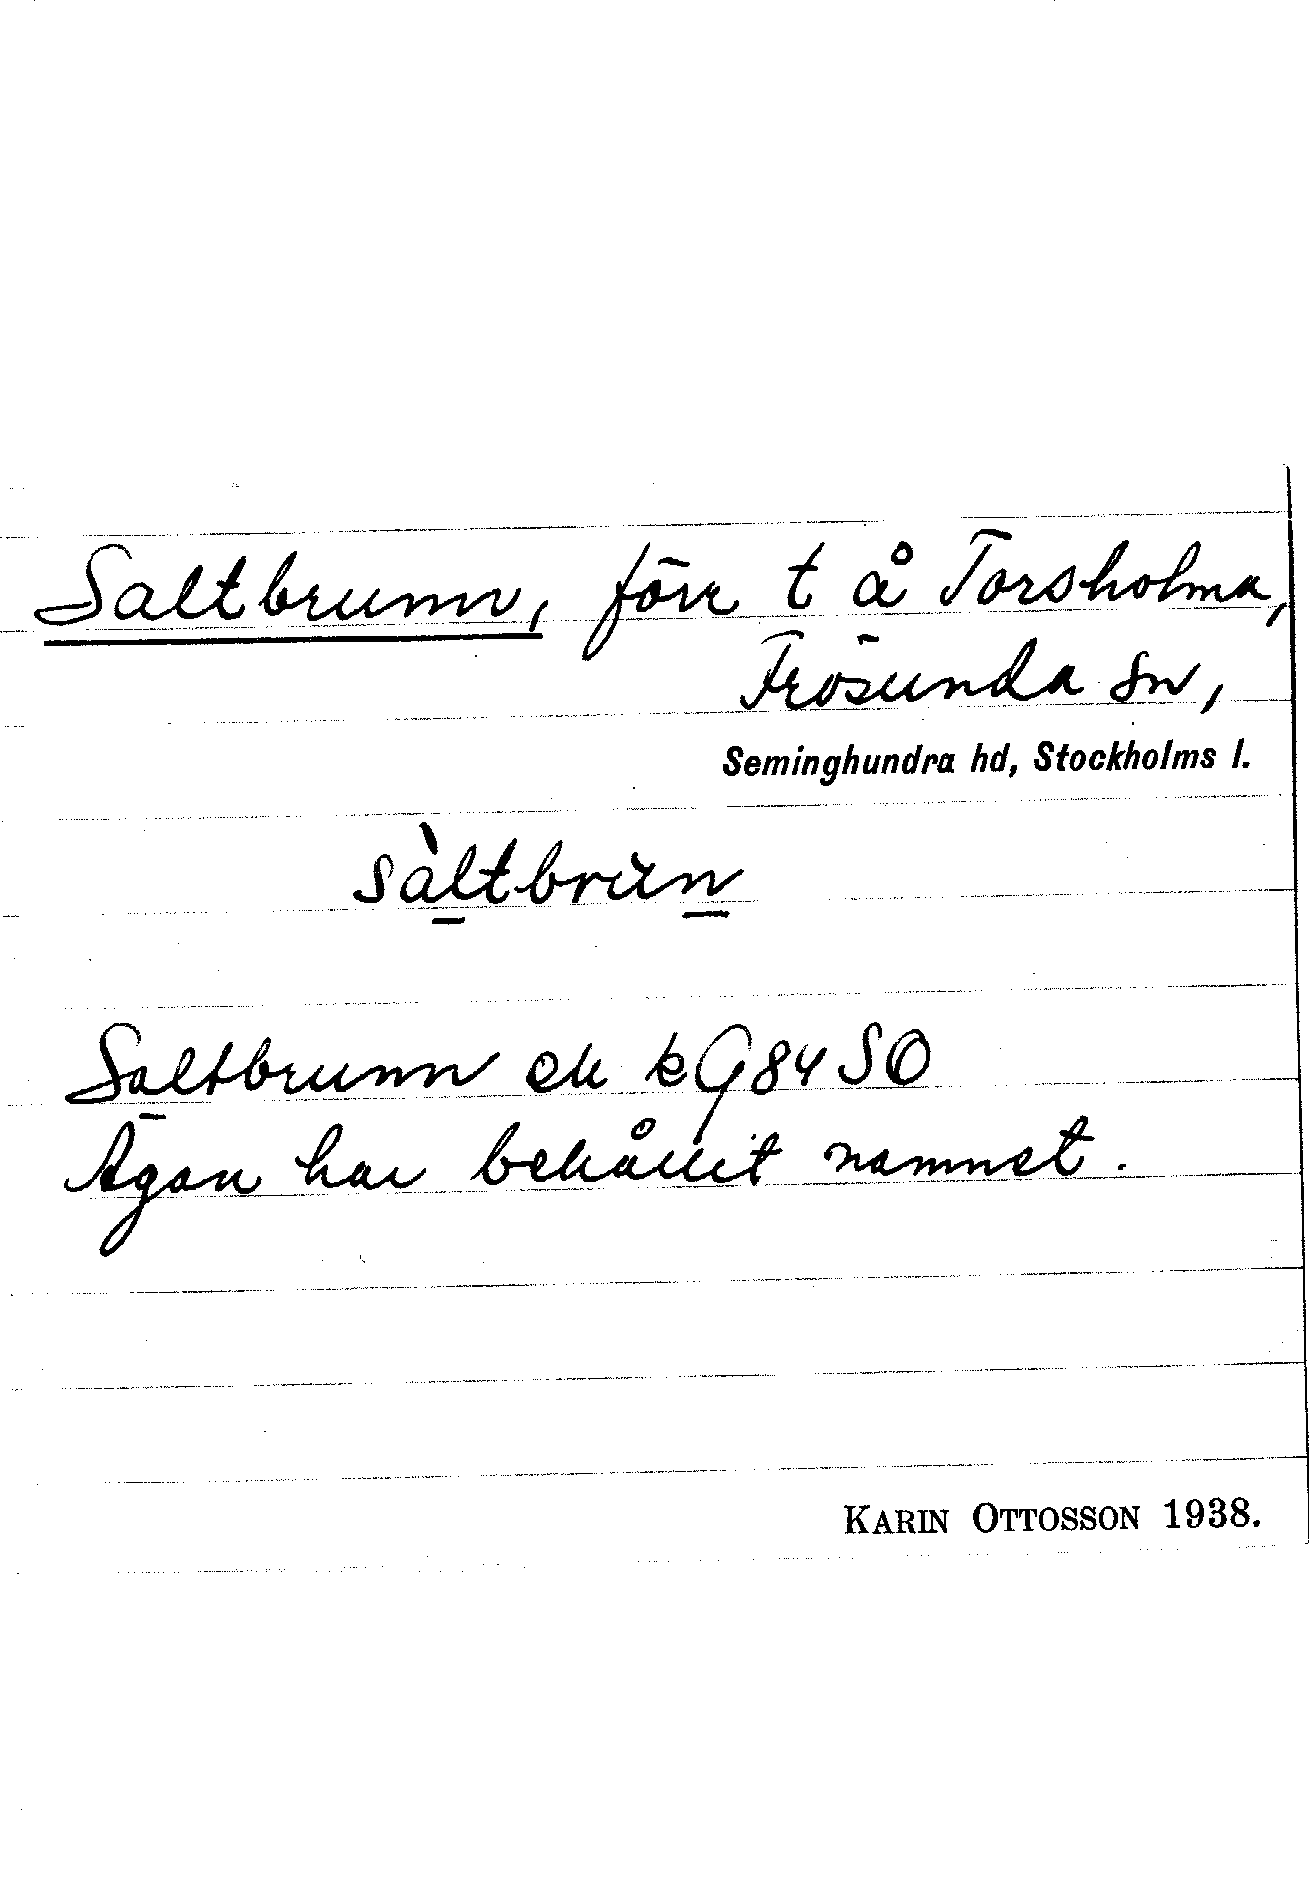 Saltbrunn, förr t å Torsholma,
Frösunda sn,
Seminghundra hd, Stockholms l.
sàltbrun
Saltbrunn ek k G84 SO
Ägan har behållit namnet.
KARIN OTTOSSON 1938.